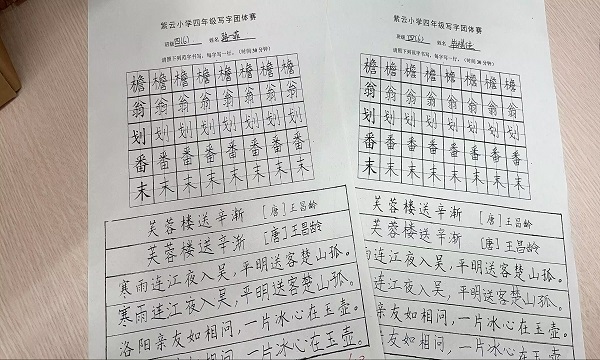 紫云小学四年级写字团体赛
班级 四(6) 姓名
请照下列范字书写,每字写一行。(时间30分钟)
檐 檐 檐 檐 檐 檐 檐 檐
翁 翁 翁 翁 翁 翁 翁 翁
划 划 划 划 划 划 划 划
番 番 番 番 番 番 番 番
末 末 末 末 末 末 末 末
芙蓉楼送辛渐 [唐]王昌龄
芙蓉楼送辛渐 [唐]王昌龄
寒雨连江夜入吴,平明送客楚山孤。
寒雨连江夜入吴,平明送客楚山孤。
洛阳亲友如相问,一片冰心在玉壶。
紫云小学四年级写字团体赛
班级 四(6) 姓名
请照下列范字书写,每字写一行。(时间30分钟)
檐 檐 檐 檐 檐 檐 檐 檐
翁 翁 翁 翁 翁 翁 翁 翁
划 划 划 划 划 划 划 划
番 番 番 番 番 番 番 番
末 末 末 末 末 末 末 末
芙蓉楼送辛渐 [唐]王昌龄
芙蓉楼送辛渐 [唐]王昌龄
雨连江夜入吴,平明送客楚山孤。
雨连江夜入吴,平明送客楚山孤。
阳亲友如相问,一片冰心在玉壶。